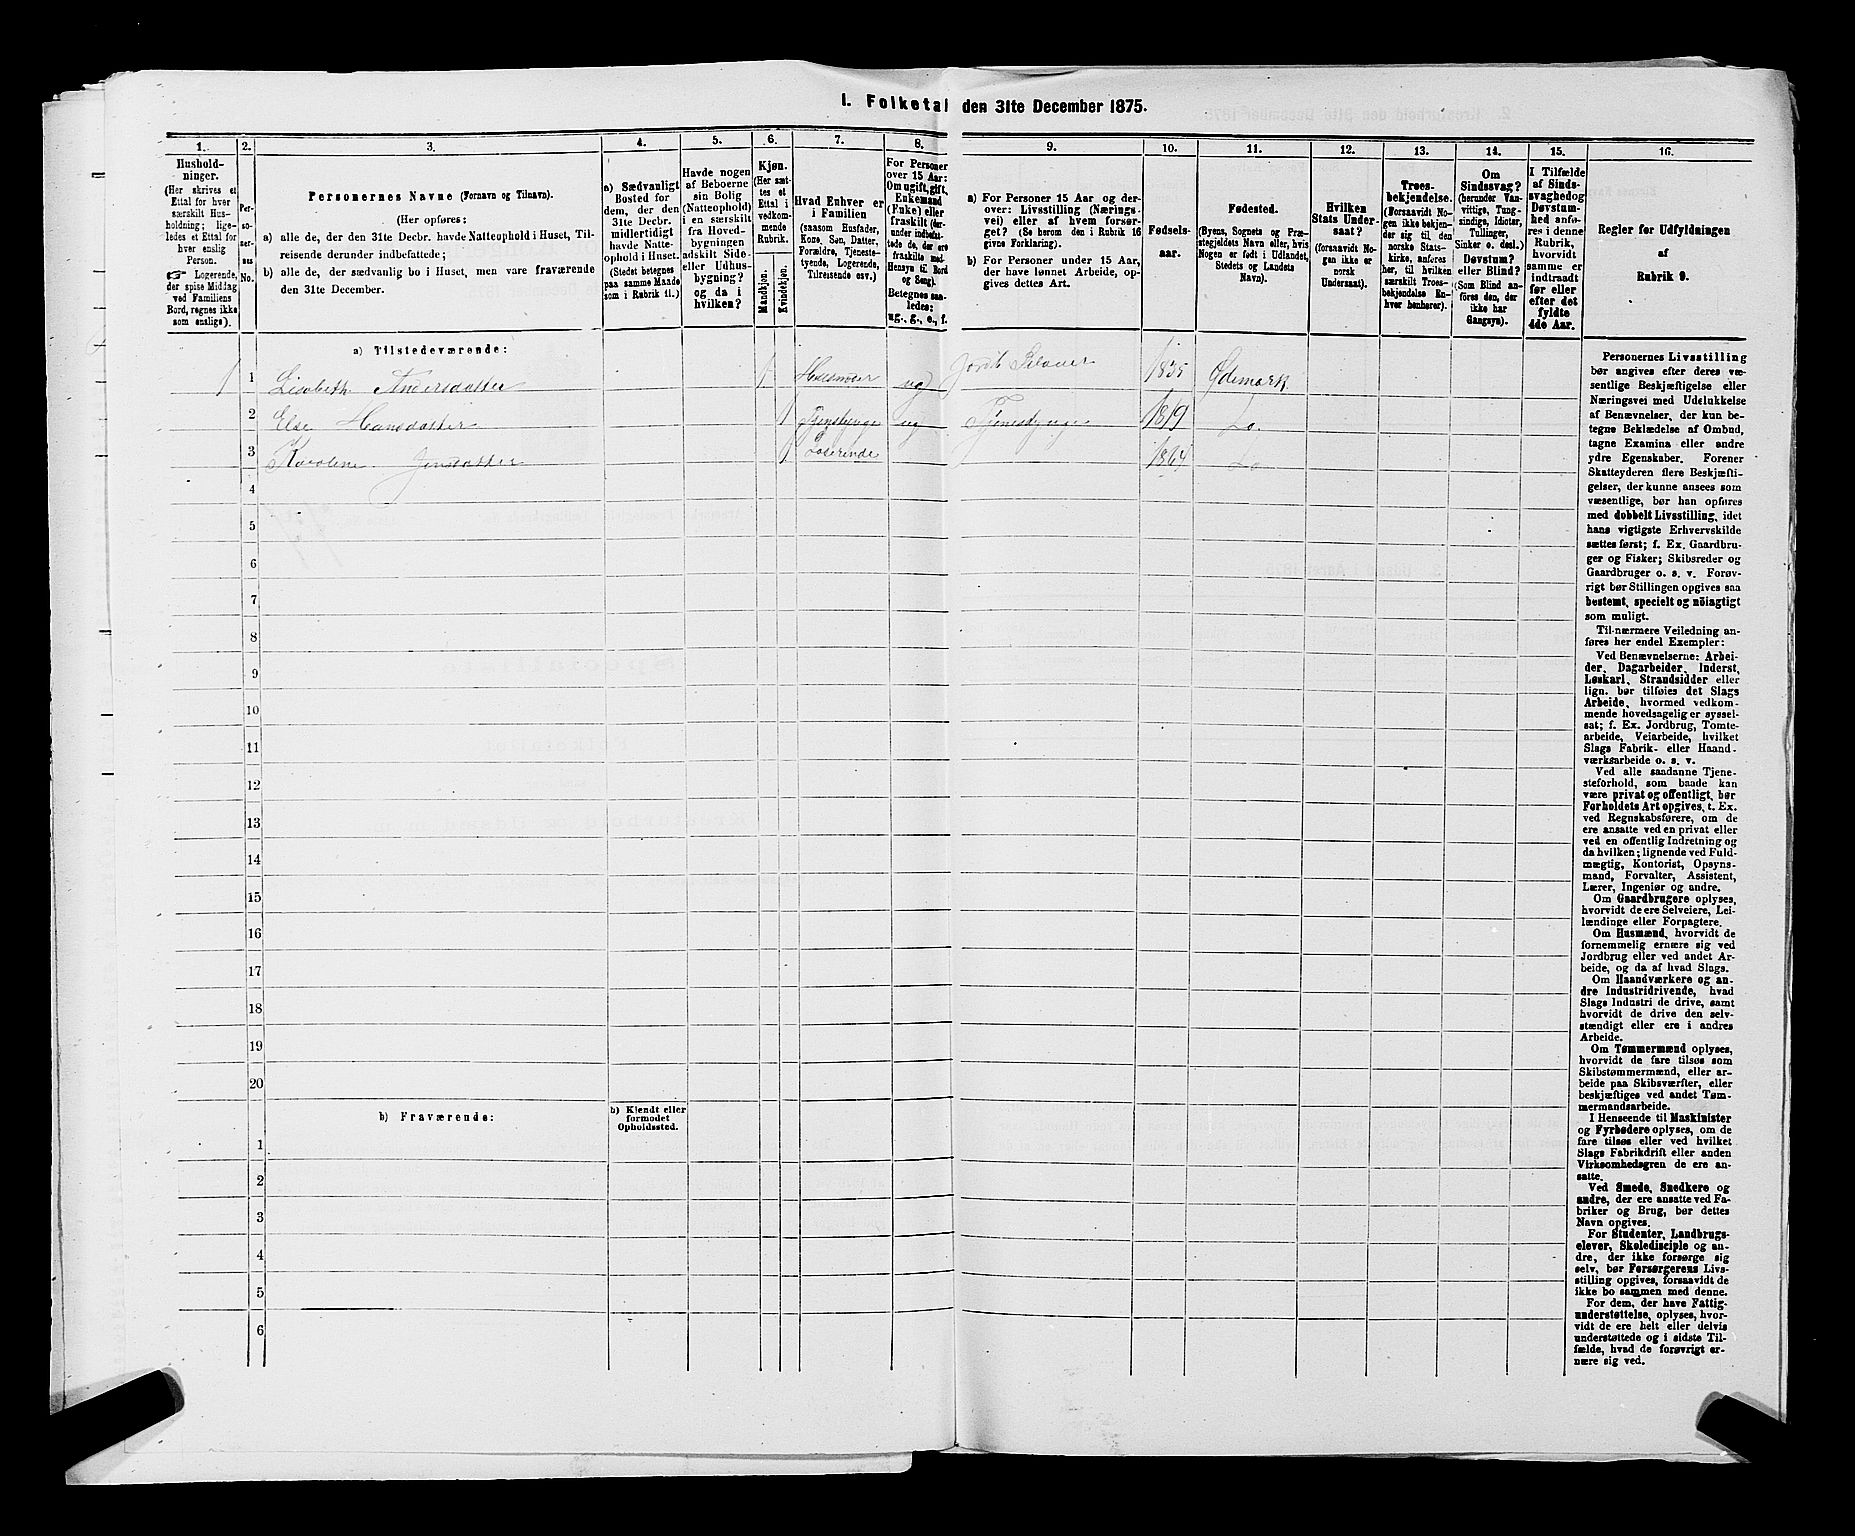 I. Folketal den 31te December 1875.
1.
Hushold-
ninger.
(Her skrives et
Ettal for hver
særskilt Hus-
holdning; lige-
ledes et Ettal for
hver enslig
Person.
☞ Logerende,
der spise Middag
ved Familiens
Bord, regnes ikke
som enslige).
2.
Per-
so-
ner-
nes
No.
3.
Personernes Navne (Fornavn og Tilnavn).
(Her opføres:
a) alle de, der den 31te Decbr. havde Natteophold i Huset, Til-
reisende derunder indbefattede;
b) alle de, der sædvanlig bo i Huset, men vare fraværende
den 31te December.
4.
a) Sædvanligt
Bosted for
dem, der den
31te Decbr.
midlertidigt
havde Natte-
ophold i Huset.
(Stedet betegnes
paa samme Maade
som i Rubrik 11.)
5.
Havde nogen
af Beboerne
sin Bolig
(Natteophold)
i en særskilt
fra Hoved-
bygningen
adskilt Side-
eller Udhus-
bygning?
og da i
hvilken?
6.
Kjøn.
(Her sæt-
tes et
Ettal i
vedkom-
mende
Rubrik.
Mandkjøn.
Kvindekjøn.
7.
Hvad Enhver er
i Familien
(saasom Husfader,
Kone, Søn, Datter,
Forældre, Tjeneste-
tyende, Logerende,
Tilreisende osv.)
8.
For Personer
over 15 Aar:
Om ugift, gift,
Enkemand
(Enke) eller
fraskilt (der-
under indbefat-
tede de, der ere
fraskilte med-
Hensyn til Bord
og Seng).
Betegnes saa-
ledes:
ug., g., e., f.
9.
a) For Personer 15 Aar og der-
over: Livsstilling (Nærings-
vei) eller af hvem forsør-
get? (Se herom den i Rubrik 16
givne Forklaring).
b) For Personer under 15 Aar,
der have lønnet Arbeide, op-
gives dettes Art.
10.
Fødsels-
aar.
11.
Fødested.
(Byens, Sognets og Præ-
stegjeldets Navn eller, hvis
Nogen er født i Udlandet,
Stedets og Landets
Navn).
12.
Hvilken
Stats Under-
saat?
(forsaavidt No-
gen ikke er
norsk
Undersaat).
13.
Troes-
bekjendelse.
(Forsaavidt No-
gen ikke bekjen-
der sig til den
norske Stats-
kirke, anføres
her, til hvilken
særskilt Troes-
bekjendelse En-
hver henhører).
14.
Om
Sindssvag?
(herunder Van-
vittige, Tung-
sindige, Idioter,
Tullinger,
Sinker o. desl.)
Døvstum?
eller Blind?
(Som Blind an-
føres den, der
ikke har
Gangsyn).
15.
I Tilfælde
af Sinds-
svaghed og
Døvstum-
hed anfø-
res i denne
Rubrik,
hvorvidt
samme er
indtraadt
før eller
efter det
fyldte
4de Aar.
16.
Regler for Udfyldningen
af
Rubrik 9.
a) Tilstedeværende:
1 1 Lisabeth Andersdatter 1 ug 1835 Ødemark
2 Else Hansdatter 1 ug 1819 Do.
3 Karolene Jensdatter 1 Loserende 1864 Do
4
5
6
7
8
9
10
11
12
13
14
15
16
17
18
19
20
b) Fraværende:
b) Kjendt eller
formodet
Opholdssted.
1
2
3
4
5
6
Personernes Livsstilling
bør angives efter deres væ-
sentlige Beskjæftigelse eller
Næringsvei med Udelukkelse
af Benævnelser, der kun be-
tegne Beklædelse af Ombud,
tagne Examina eller andre
ydre Egenskaber. Forener
Skatteyderen flere Beskjæfti-
gelser, der kunne ansees som
væsentlige, bør han opføres
med dobbelt Livsstilling, idet
hans vigtigste Erhvervskilde
sættes først; f. Ex. Gaardbru-
ger og Fisker; Skibsreder og
Gaardbruger o. s. v. Forøv-
rigt bør Stillingen opgives saa
bestemt, specielt og nöiagtigt
som muligt.
Til nærmere Veiledning an-
føres her endel Exempler:
Ved Benævnelserne: Arbei-
der, Dagarbeider, Inderst,
Løskarl, Strandsidder eller
lign. bør tilføies det Slags
Arbeide, hvormed vedkom-
mende hovedsagelig er syssel-
sat; f. Ex. Jordbrug, Tomte-
arbeide, Veiarbeide, hvilket
Slags Fabrik- eller Haand-
værksarbeide o. s. v.
Ved alle saadanne Tjene-
steforhold, som baade kan
være privat og offentligt, bør
Forholdets Art opgives, t. Ex.
ved Regnskabsførere, om de
ere ansatte ved en privat eller
ved en offentlig Indretning og
da hvilken; lignende ved Fuld-
mægtig, Kontorist, Opsyns-
mand, Forvalter, Assistent,
Lærer, Ingeniør og andre.
Om Gaardbrugere oplyses,
hvorvidt de ere Selveiere, Lei-
lændinge eller Forpagtere.
Om Husmænd, hvorvidt de
fornemmelig ernære sig ved
Jordbrug eller ved andet Ar-
beide, og da af hvad Slags.
Om Haandværkere og an-
dre Industridrivende, hvad
Slags Industri de drive, samt
hvorvidt de drive den selv-
stændigt eller ere i andres
Arbeide.
Om Tømmermænd oplyses,
hvorvidt de fare tilsøs som
Skibstømmermænd, eller ar-
beide paa Skibsværfter, eller
beskjæftiges ved andet Tøm-
mermandsarbeide.
I Henseende til Maskinister
og Fyrbødere oplyses, om de
fare tilsøs eller ved hvilket
Slags Fabrikdrift eller anden
Virksomhedsgren de ere an-
satte.
Ved Smede, Snedkere og
andre, der ere ansatte ved Fa-
briker og Brug, bør dettes
Navn opgives.
For Studenter, Landbrugs-
elever, Skoledisciple og an-
dre, der ikke forsørge sig
selv, bør Forsørgerens Livs-
stilling opgives, forsaavidt de
ikke bo sammen med denne.
For dem, der have Fattig-
understøttelse, oplyses, hvor-
vidt de ere helt eller delvis
understøttede og i sidste Til-
fælde, hvad de forøvrigt er-
nære sig ved.